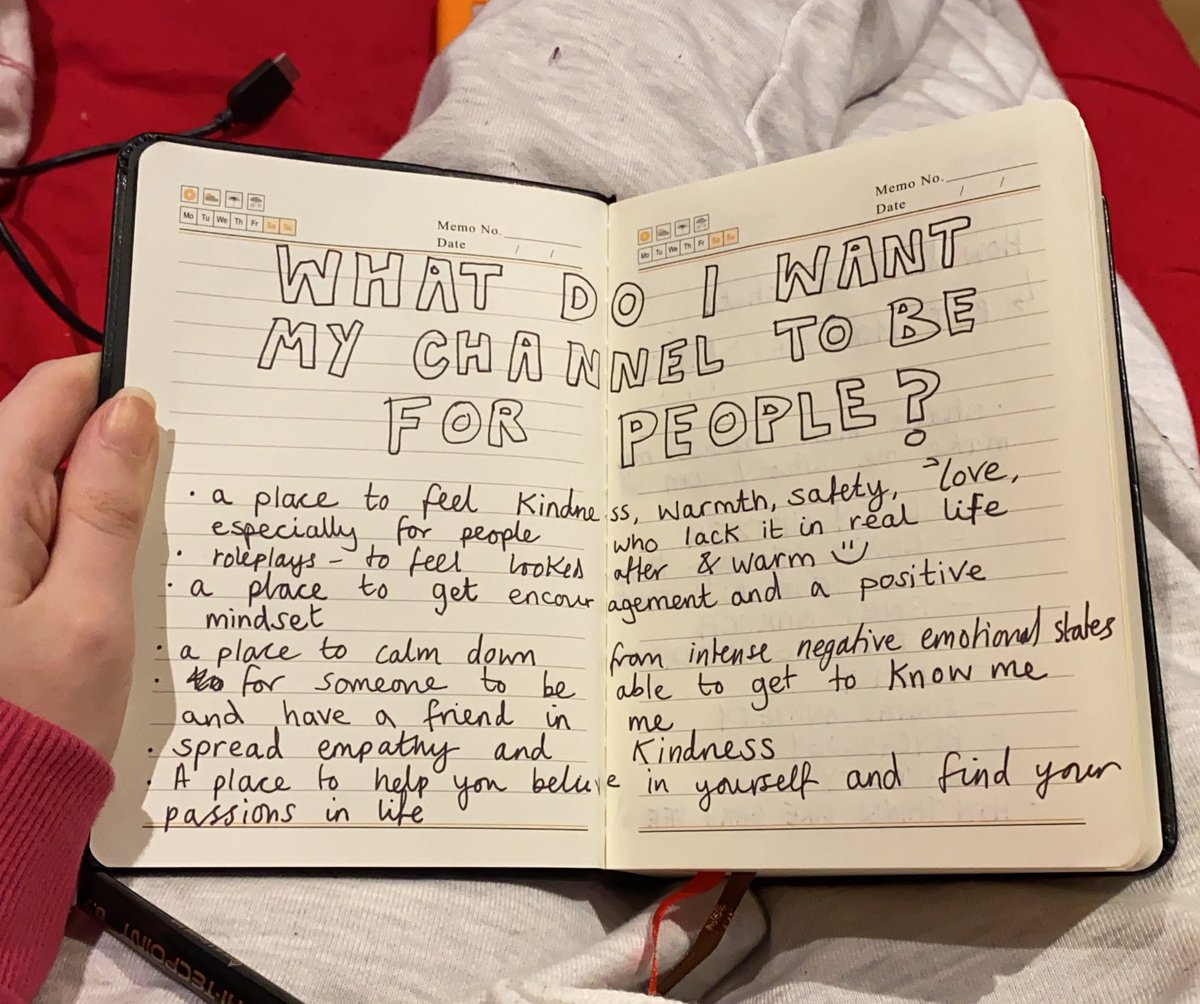 Mo Tu We Th Fr Sa Su
Memo No.
Date / /
Mo Tu We Th Fr Sa Su
Memo No.
Date / /
WHAT DO I WANT
MY CHANNEL TO BE
FOR PEOPLE?
· a place to feel kindness, warmth, safety, love,
especially for people who lack it in real life
· roleplays - to feel looked after & warm
· a place to get encouragement and a positive
mindset
· a place to calm down from intense negative emotional states
· for someone to be able to get to know me
and have a friend in me
· spread empathy and kindness
· A place to help you believe in yourself and find your
passions in life
HI-TECPOINT